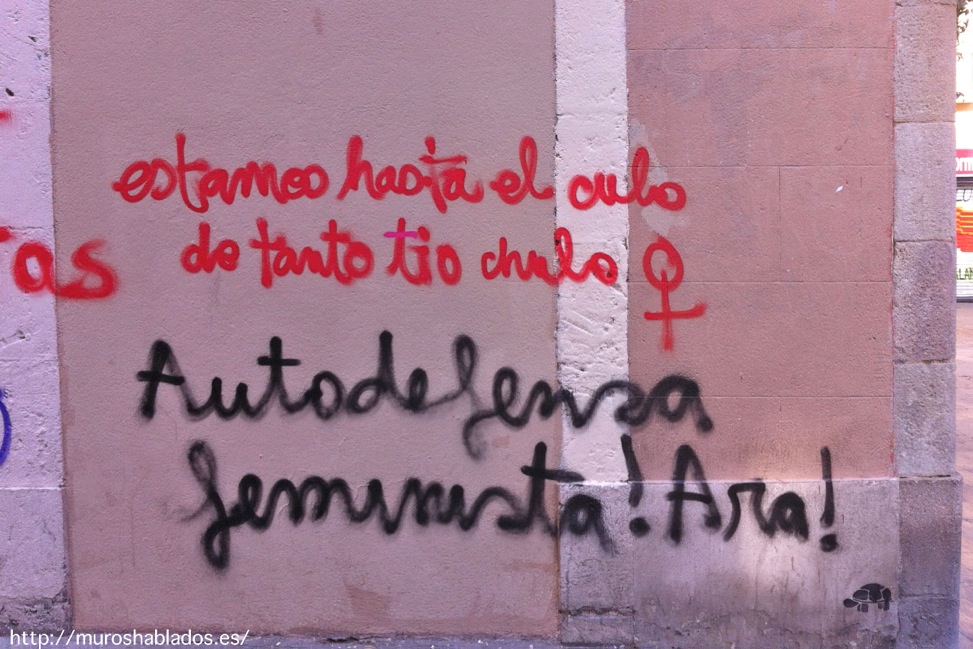 estamos hasta el culo
de tanto tio chulo ♀
as
Autodefensa
feminista! Ara!
http://muroshablados.es/